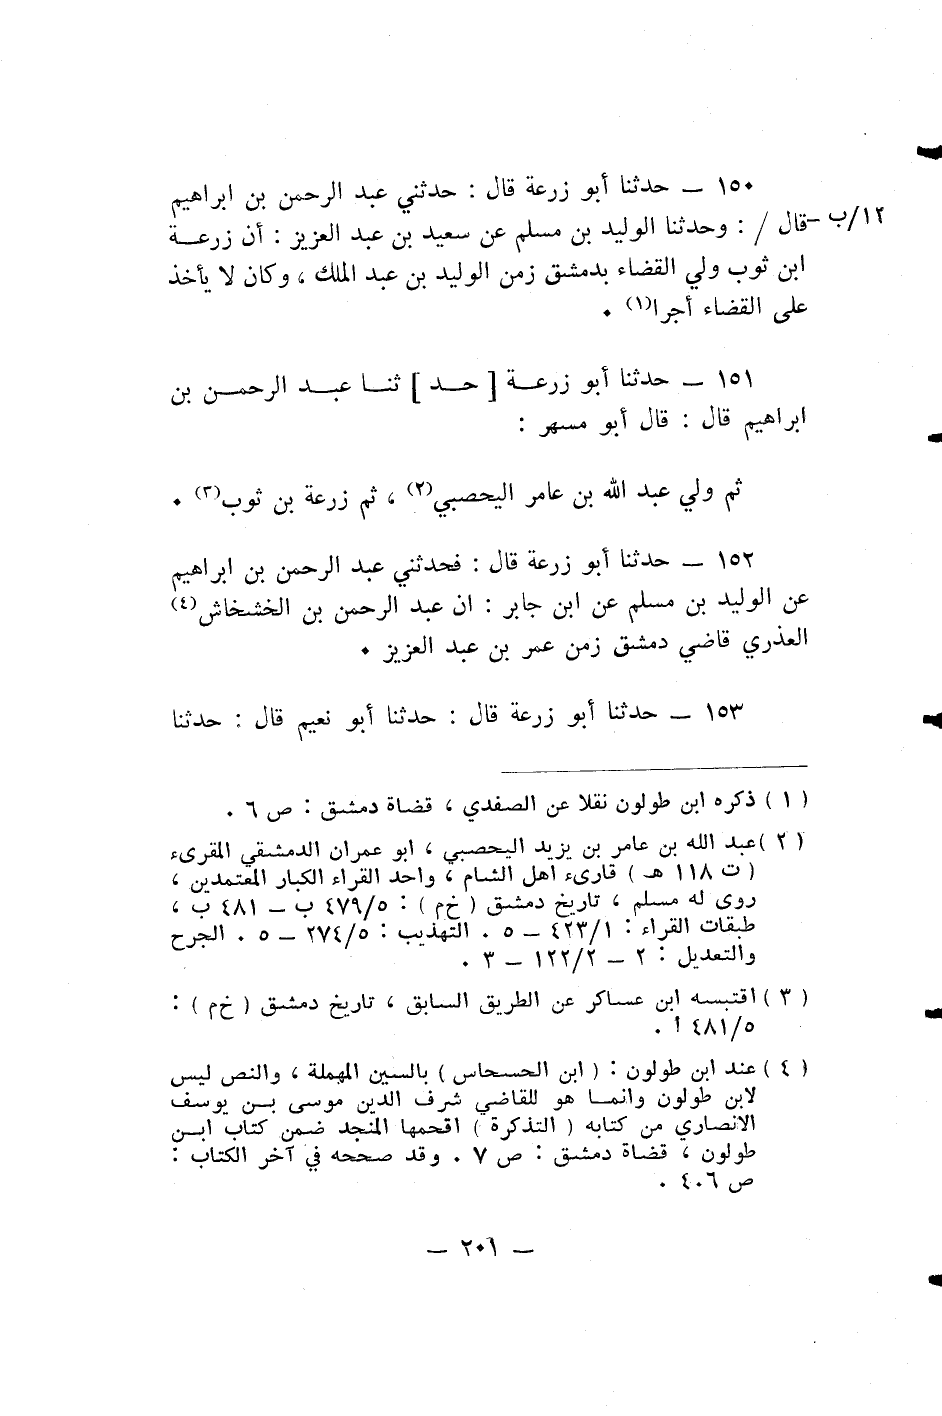 ١٥٠ ــ حدثنا أبو زرعة قال : حدثني عبد الرحمن بن ابراهيم
١٢/ب -قال / : وحدثنا الوليد بن مسلم عن سعيد بن عبد العزيز : أن زرعــة
ابن ثوب ولي القضاء بدمشق زمن الوليد بن عبد الملك ، وكان لا يأخذ
على القضاء أجرا(١) ٠
١٥١ ــ حدثنا أبو زرعــة [ حــد ] ثنــا عبــد الرحمــن بن
ابراهيم قال : قال أبو مسهر :
ثم ولي عبد الله بن عامر اليحصبي(٢) ، ثم زرعة بن ثوب(٣) ٠
١٥٢ ــ حدثنا أبو زرعة قال : فحدثني عبد الرحمن بن ابراهيم
عن الوليد بن مسلم عن ابن جابر : ان عبد الرحمن بن الخشخاش(٤)
العذري قاضي دمشق زمن عمر بن عبد العزيز ٠
١٥٣ ــ حدثنا أبو زرعة قال : حدثنا أبو نعيم قال : حدثنا
( ١ ) ذكره ابن طولون نقلا عن الصفدي ، قضاة دمشق : ص ٦ .
( ٢ )عبد الله بن عامر بن يزيد اليحصبي ، ابو عمران الدمشقي المقرىء
( ت ١١٨ هـ ) قارىء اهل الشام ، واحد القراء الكبار المعتمدين ،
روى له مسلم ، تاريخ دمشق ( خم ) : ٤٧٩/٥ ب ــ ٤٨١ ب ،
طبقات القراء : ٤٢٣/١ ــ ٥ . التهذيب : ٢٧٤/٥ ــ ٥ . الجرح
والتعديل : ٢ ــ ١٢٢/٢ ــ ٣ .
( ٣ ) اقتبسه ابن عساكر عن الطريق السابق ، تاريخ دمشق ( خم ) :
٤٨١/٥ أ .
( ٤ ) عند ابن طولون : ( ابن الحسحاس ) بالسين المهملة ، والنص ليس
لابن طولون وانمــا هو للقاضي شرف الدين موسى بــن يوسف
الانصاري من كتابه ( التذكرة ) اقحمها المنجد ضمن كتاب ابــن
طولون ، قضاة دمشق : ص ٧ . وقد صححه في آخر الكتاب :
ص ٤٠٦ .
ــ ٢٠١ ــ